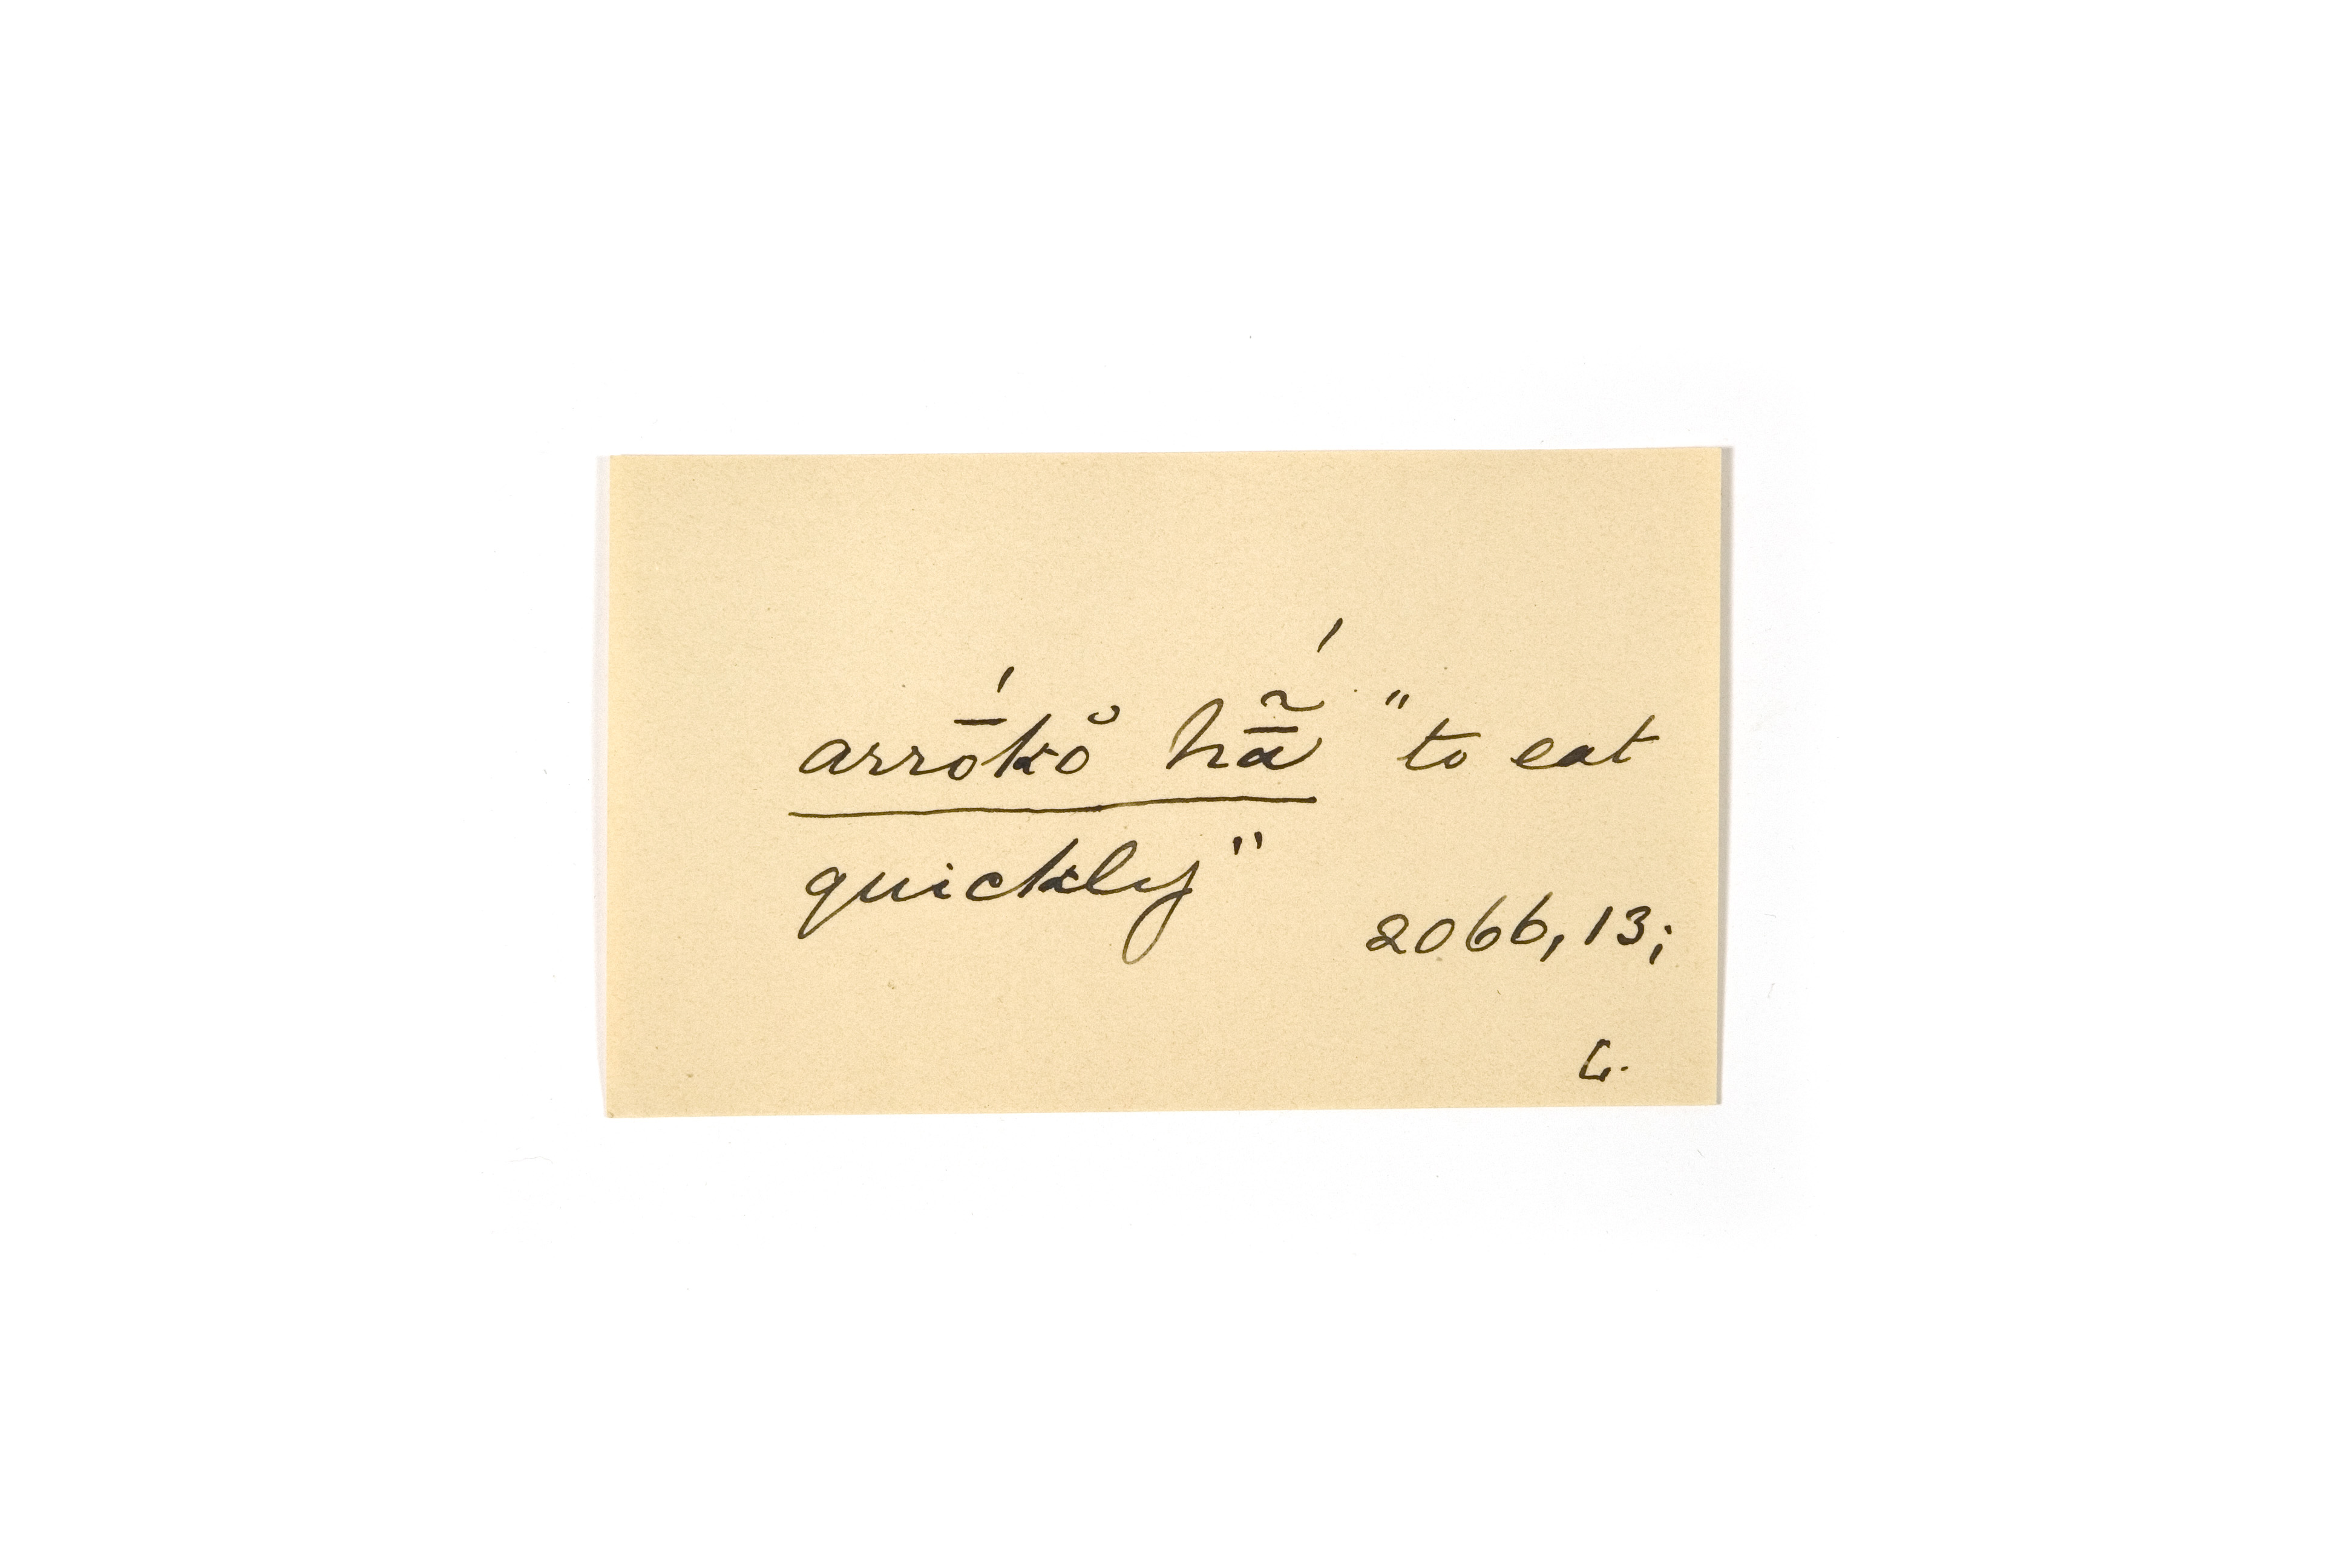 arrṓkŏ hā̃́ "to eat
quickly"
2066, 13;
L.